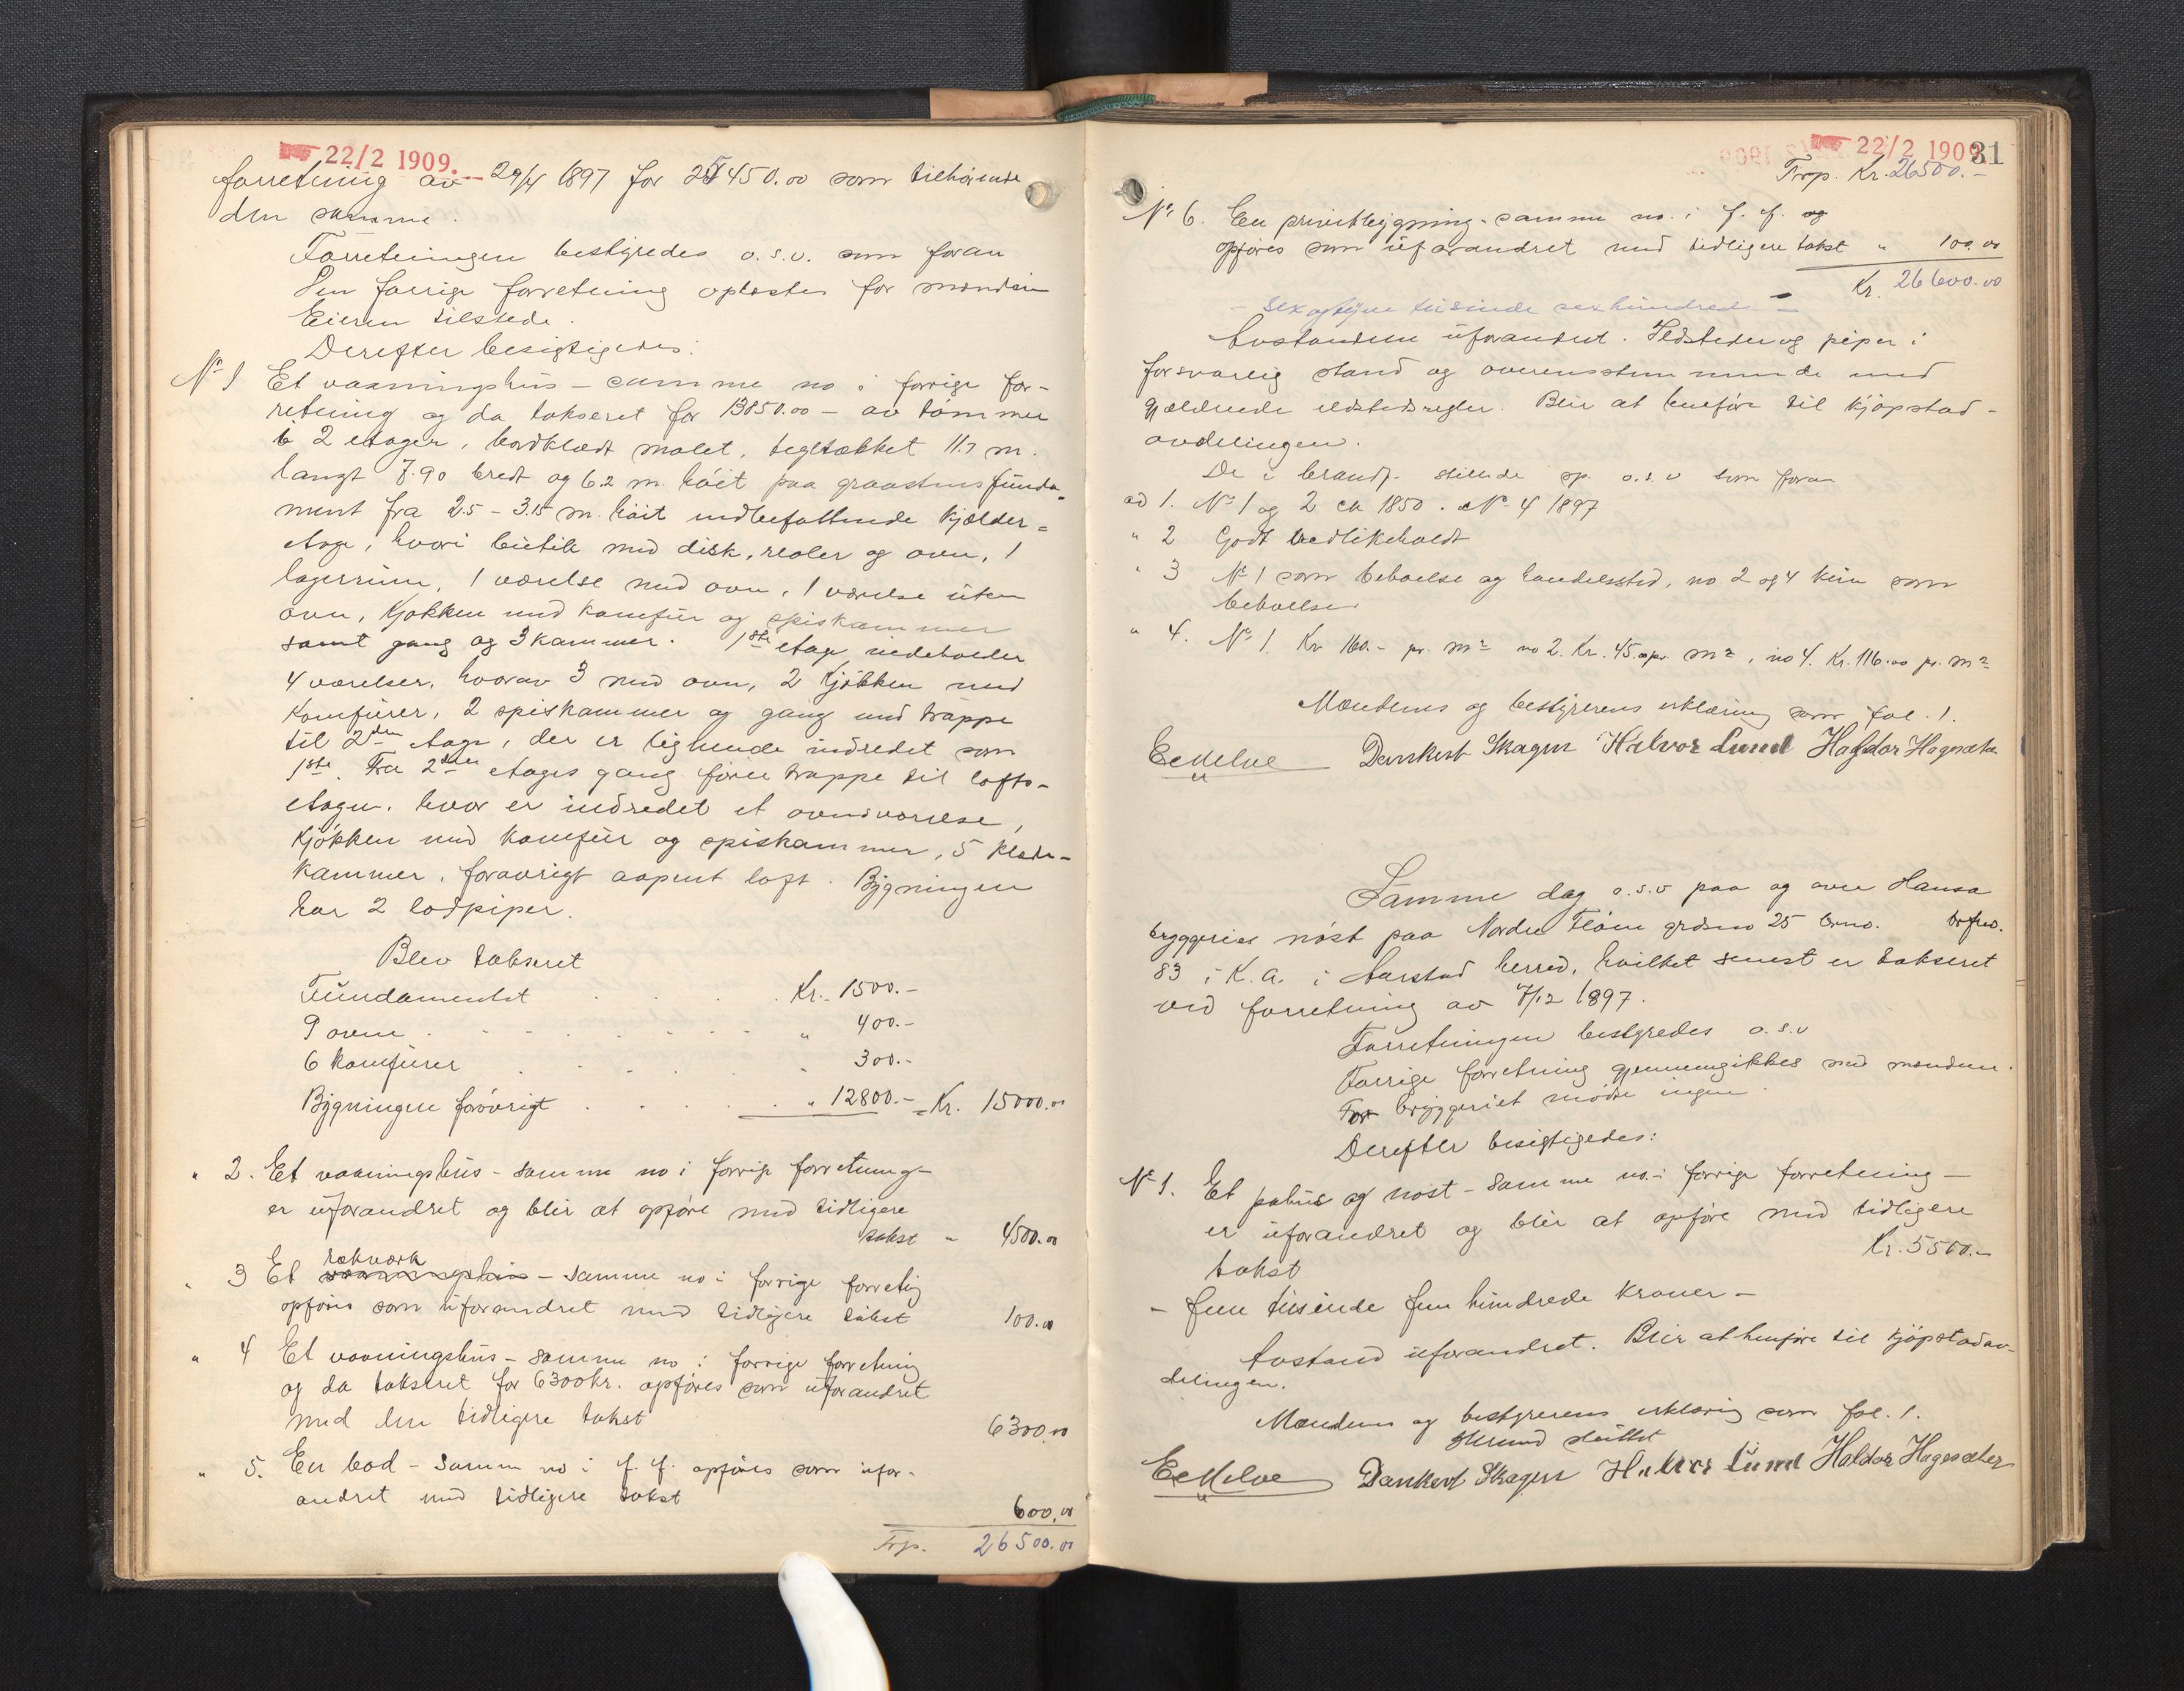 22/2 1909.
forretning av 29/4 1897 for 25450.00 som tilhørende
den samme.
Forretningen bestyredes o.s.v. som foran
Den forrige forretning oplæstes for mændene
Eieren tilstede.
Derefter besigtigedes:
No 1 Et vaaningshus - samme no i forrige for-
retning og da takseret for 13850.00 - av tømmer
i 2 etager, bordklædt malet, tegltækket 11.7 m.
langt 7.90 bredt og 6.2 m. høit paa graastensfunda-
ment fra 2.5 - 3.15 m. høit indbefattende kjælder-
etage, hvori butik med disk, reoler og ovn, 1
lagerrum, 1 værelse med ovn, 1 værelse uten
ovn, kjøkken med komfur og spiskammer
samt gang og 3 kammer. 1ste etage indeholder
4 værelser, hvorav 3 med ovn, 2 kjøkken med
komfurer, 2 spiskammer og gang med trappe
til 2den etage, der er lignende indredet som
1ste. Fra 2den etages gang fører trappe til lofts-
etagen, hvor er indredet et ovnsværelse,
kjøkken med komfur og spiskammer, 5 klæde-
kammer, forøvrigt aapent loft. Bygningen
har 2 lodpiper.
Blev takseret
Fundamentet . . . Kr. 1500.-
9 ovne . . . . . . " 400.-
6 komfurer . . . . " 300.-
Bygningen forøvrigt . . . . " 12800.- = Kr. 15000.00
" 2. Et vaaningshus - samme no i forrige forretning -
er uforandret og blir at opføre med tidligere
takst " 4500.00
rækværk
" 3 Et vaaningshus - samme no i forrige forretnig
opføres som uforandret med tidligere takst 100.00
" 4 Et vaaningshus - samme no i forrige forretning
og da takseret for 6300 kr. opføres som uforandret
med den tidligere takst 6300.00
" 5. En bod - samme no i f. f. opføres som ufor-
andret med tidligere takst
600.00
Trp. 26500.00
22/2 1909.
31
Trp. Kr. 26500.-
No 6. En privetbygning - samme no. i f. f. og
opføres som uforandret med tidligere takst " 100.00
Kr. 26600.00
- sexogtyve tusinde sexhundred -
Avstandene uforandret. Ildsteder og piper i
forsvarlig stand og overensstemmende med
gjældende ildstedsregler. Blir at henføre til kjøpstad-
avdelingen.
De i brandf. stillede sp. o.s.v som foran
ad 1. No 1 og 2 ca 1850. No 4 1897
" 2 Godt vedlikeholdt
" 3 No 1 som beboelse og handelssted, no 2 og 4 kun som
beboelse
" 4. No 1. Kr 160.- pr. m2 no 2. Kr. 45.00 pr. m2, no 4. Kr. 116.00 pr. m2
Mændenes og bestyrerens erklæring som fol. 1.
Dankert Skagen Halvor Lund Haldor Hagesæter
Samme dag o.s.v paa og over Hansa
bryggeries nøst paa Nordre Fløen grdsno 25 brno. brfno.
83 i K.A. i Aarstad herred, hvilket senest er takseret
ved forretning av 7/12 1897.
Forretningen bestyredes o.s.v
Forrige forretning gjennemgikkes med mændene.
For bryggeriet mødte ingen
Derefter besigtigedes:
No 1. Et pakhus og nøst - samme no. i forrige forretning -
er uforandret og blir at opføre med tidligere
takst Kr. 5500.-
- fem tusinde fem hundrede kroner -
Avstand uforandret. Blir at henføre til kjøpstadav-
delingen.
Mændenes og bestyrerens erklæring som fol. 1.
sluttet
Dankert Skagen Halvor Lund Haldor Hagesæter